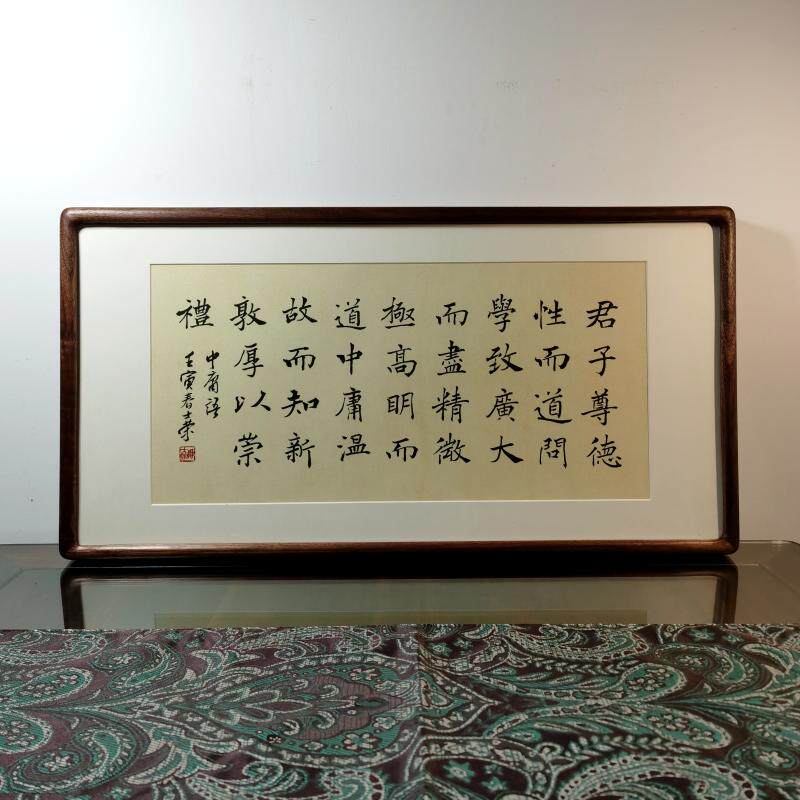 君子尊德
性而道問
學致廣大
而盡精微
極高明而
道中庸温
故而知新
敦厚以崇
禮
中庸語
壬寅春士荣